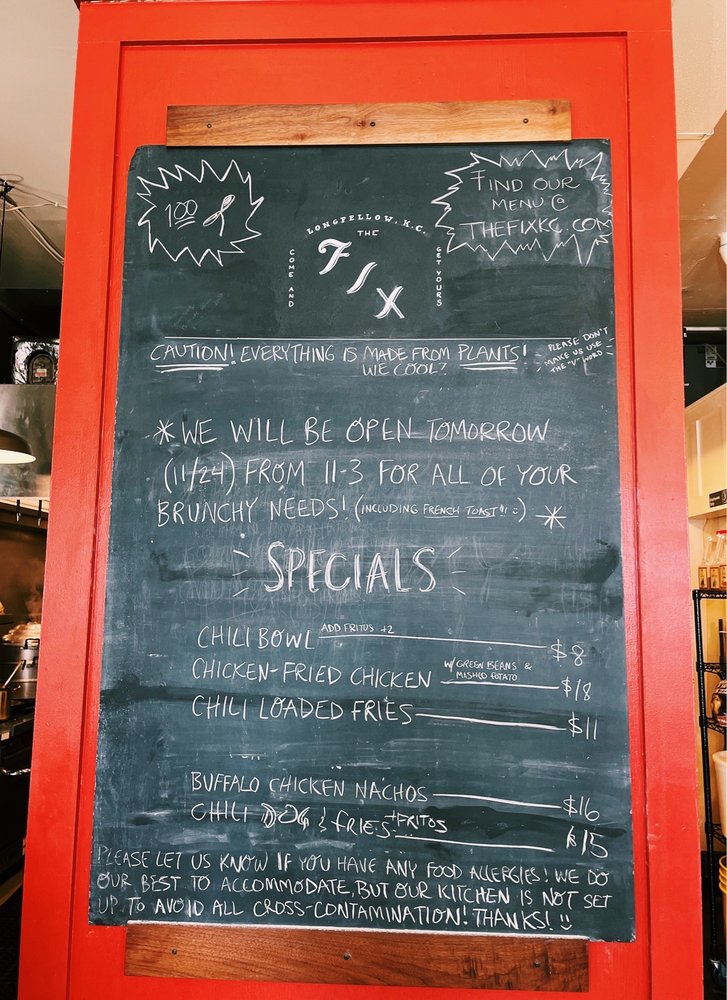 100
FIND OUR
MENU @
THEFIXKC.COM
LONGFELLOW, K.C.
THE
FIX
COME AND
GET YOURS
CAUTION! EVERYTHING IS MADE FROM PLANTS!
WE COOL?
PLEASE DON'T
MAKE US USE
THE "V" WORD
*WE WILL BE OPEN TOMORROW
(11/24) FROM 11-3 FOR ALL OF YOUR
BRUNCHY NEEDS! (INCLUDING FRENCH TOAST!! :) *
SPECIALS
CHILI BOWL ADD FRITOS +2 $8
CHICKEN-FRIED CHICKEN W/ GREEN BEANS &
MASHED POTATO $18
CHILI LOADED FRIES $11
BUFFALO CHICKEN NACHOS $16
CHILI DOG & FRIES +FRITOS $15
PLEASE LET US KNOW IF YOU HAVE ANY FOOD ALLERGIES! WE DO
OUR BEST TO ACCOMMODATE, BUT OUR KITCHEN IS NOT SET
UP TO AVOID ALL CROSS-CONTAMINATION! THANKS! :)